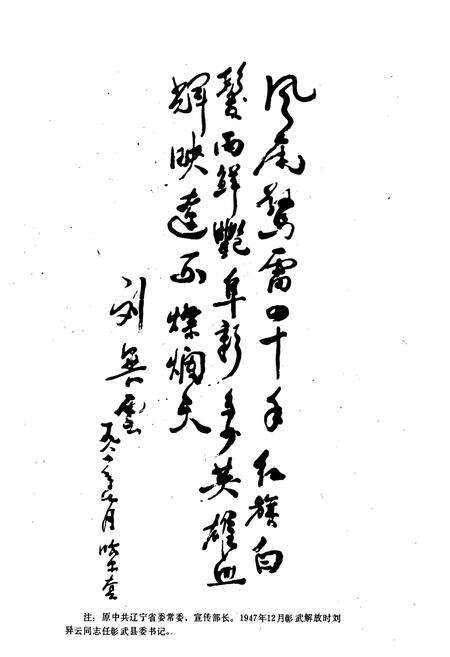 风雨驚雷四十年红旗白
鬓两鲜艷阜新多少英雄血
辉映遼西燦烂天
刘異云
一九八一年 月哈尔套
注：原中共辽宁省委常委，宣传部长。1947年12月彰武解放时刘
异云同志任彰武县委书记。